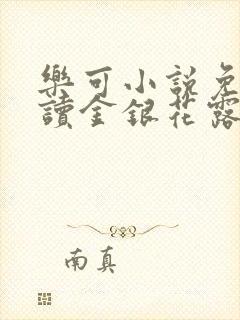 樂可小說免
讀金銀花露
南真